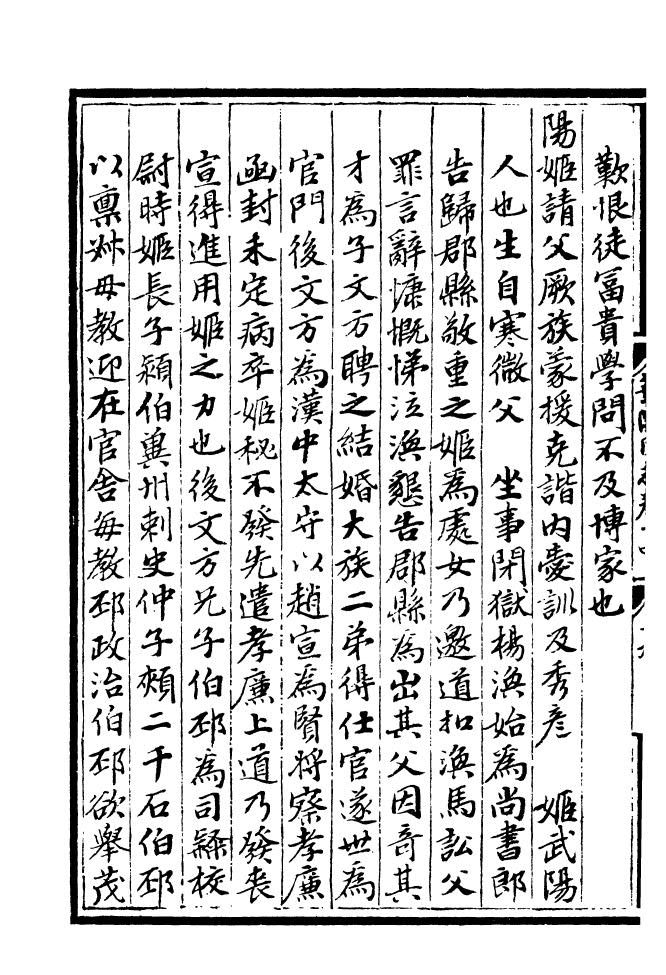 歎恨徒冨貴學問不及博家也
陽姬請父厥族蒙援克諧内愛訓及秀彦　姬武陽
人也生自寒微父　坐事閉獄楊渙始為尚書郎
告歸郡縣敬重之姬為處女乃邀道扣渙馬訟父
罪言辭慷慨悌泣渙懇告郡縣為出其父因竒其
才為子文方聘之結婚大族二弟得仕官遂世為
官門後文方為漢中太守以趙宣為賢将察孝廉
函封未定病卒姬秘不發先遣孝廉上道乃發丧
宣得進用姬之力也後文方兄子伯邳為司𨽻校
尉時姬長子潁伯兾州刺史仲子頰二千石伯邳
以禀叔母教迎在官舎每教邳政治伯邳欲舉茂